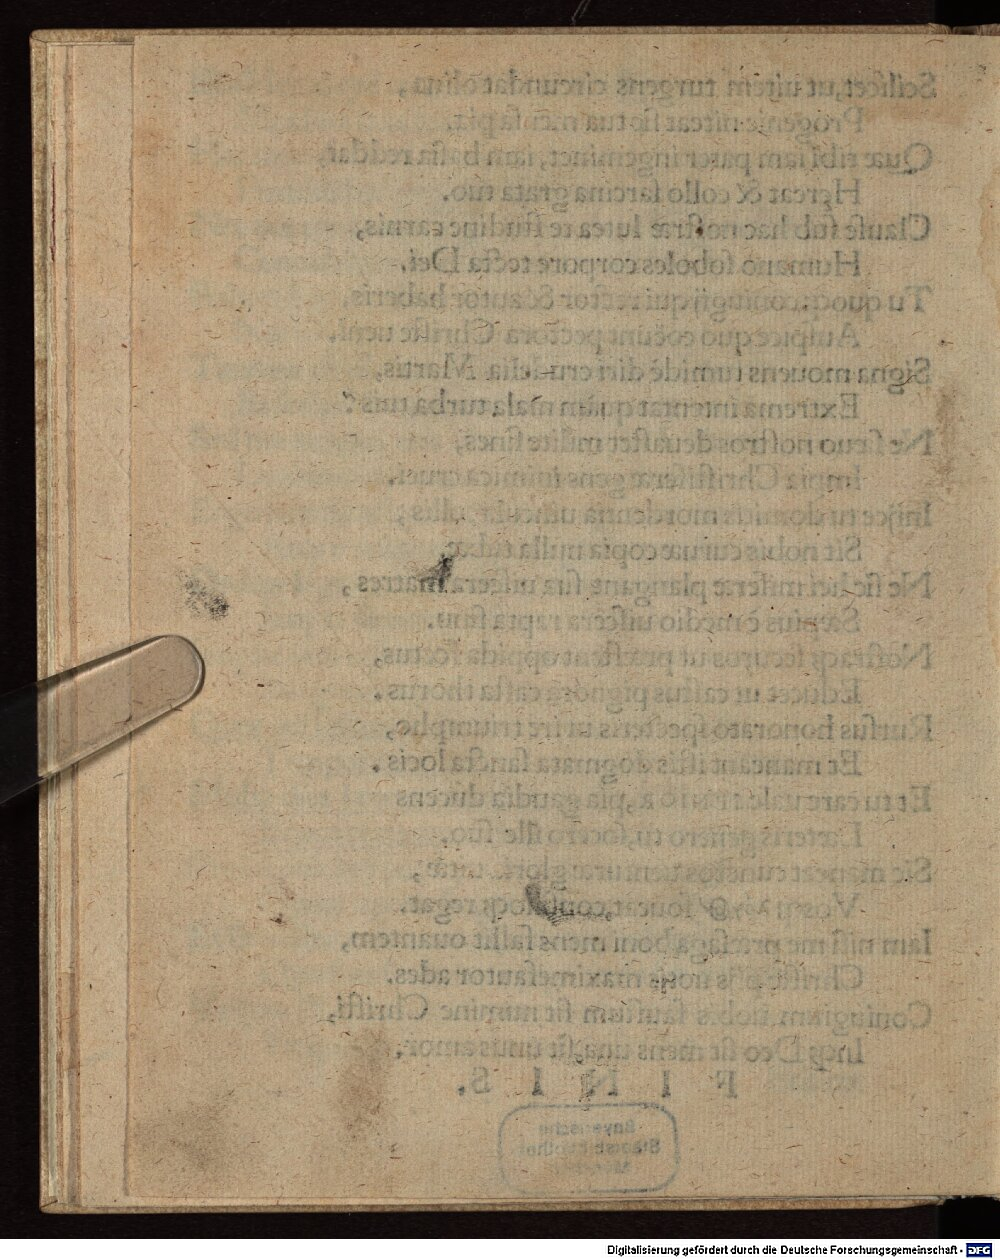 Scilicet, ut uitem turgens circundat oliua,
Progenie niteat sic tua mensa pia.
Quæ tibi iam pater ingeminet, iam basia reddat,
Hereat & collo sarcina grata tuo.
Clause sub hac nostræ luteæ testudine carnis,
Humano soboles corpore tecta Dei.
Tu quoq; coniugij qui rector & autor haberis,
Auspice quo coëunt pectora Christe ueni.
Signa mouens tumidè diri crudelia Martis,
Extrema intentat quàm mala turba tuis?
Ne sæuo nostros deuastet milite fines,
Impia Christiferæ gens inimica cruci.
Inijce tu domitis mordentia uincula
Sit nobis curuæ copia nulla tubæ
Ne sic hei miseræ plangant sua uiscera matres,
Sæpius è medio uiscera rapta sinu.
Nostraq; securos ut præstent oppida foetus,
Educet ut castus pignora casta thorus.
Rursus honorato specteris ut ire triumpho,
Et maneant istis dogmata sancta locis.
Et tu care uale pia gaudia ducens
Læteris genero tu, socero ille suo.
Sic maneat cunctos uenturæ gloria uitæ,
Vos foueat, regat.
Iam nisi me præsaga boni mens fallit ouantem,
Christe pijs uotis maxime fautor ades.
Coniugium uobis faustum sit numine Christi,
Inq; Deo sit mens una sit unus amor,
F I N I S.
Bayerische
Staatsbibliothek
München
Digitalisierung gefördert durch die Deutsche Forschungsgemeinschaft - DFG